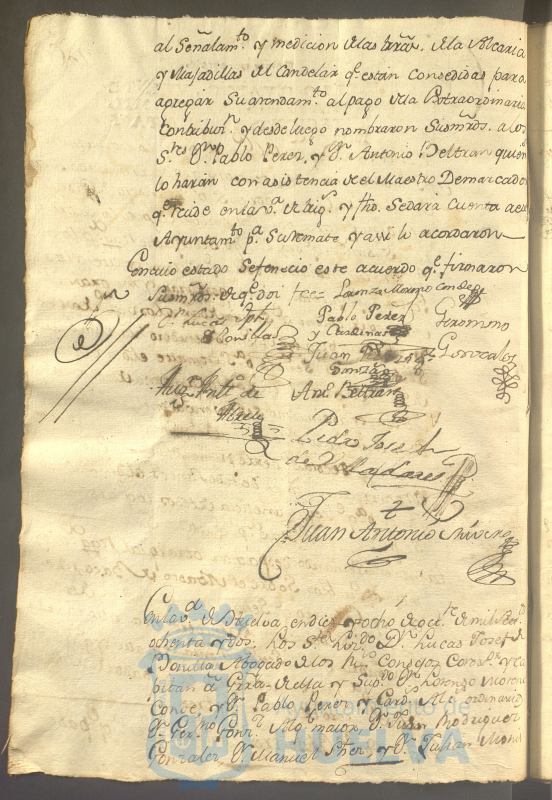 al Señalamto y medicion de las trras. de la Alcaria
y Majadillas del Candelar qe. estan consedidas para
agregar Su arrendamto. al pago de la Extraordinaria
Contribun. y desde luego nombraron Susmrds. a los
Sres. Dn. Pablo Perez, y Dn. Antonio Beltran quien
lo harán con asistencia de el Maestro Demarcador
qe. recide en la va. de trigs. y fho. Se dará Cuenta a este
Ayuntamto. pa. Su remate y assi lo acordaron
Con cuio estado Se fenecio este acuerdo qe. firmaron
Susmrds. de qe. doi fee= Lorenzo Moreno Conde
Lucas Jph
Bonilla
Pablo Perez
y Cardenas
Geronimo
Gonzales
Juan
Anto. Beltran
Pedro Josef
de Valladares
Juan Antonio
En la va. de Huelva, en dies y ocho de de mil Setos.
ochenta y dos. Los Sres. Lizdo. Dn. Lucas Josef de
Bonilla Abogado de los Rs. Consejos Corexr. y ca
pitan a Grra de ella y Dn. Lorenzo Moreno
Conde, y Dn. Pablo Perez y Card. Als. ordinarios
Dn. Germo. Gonz. Alg. maior, Dn. Juan Rodriguez
Gonzalez Dn. Manuel y Dn. Julian
HUELVA